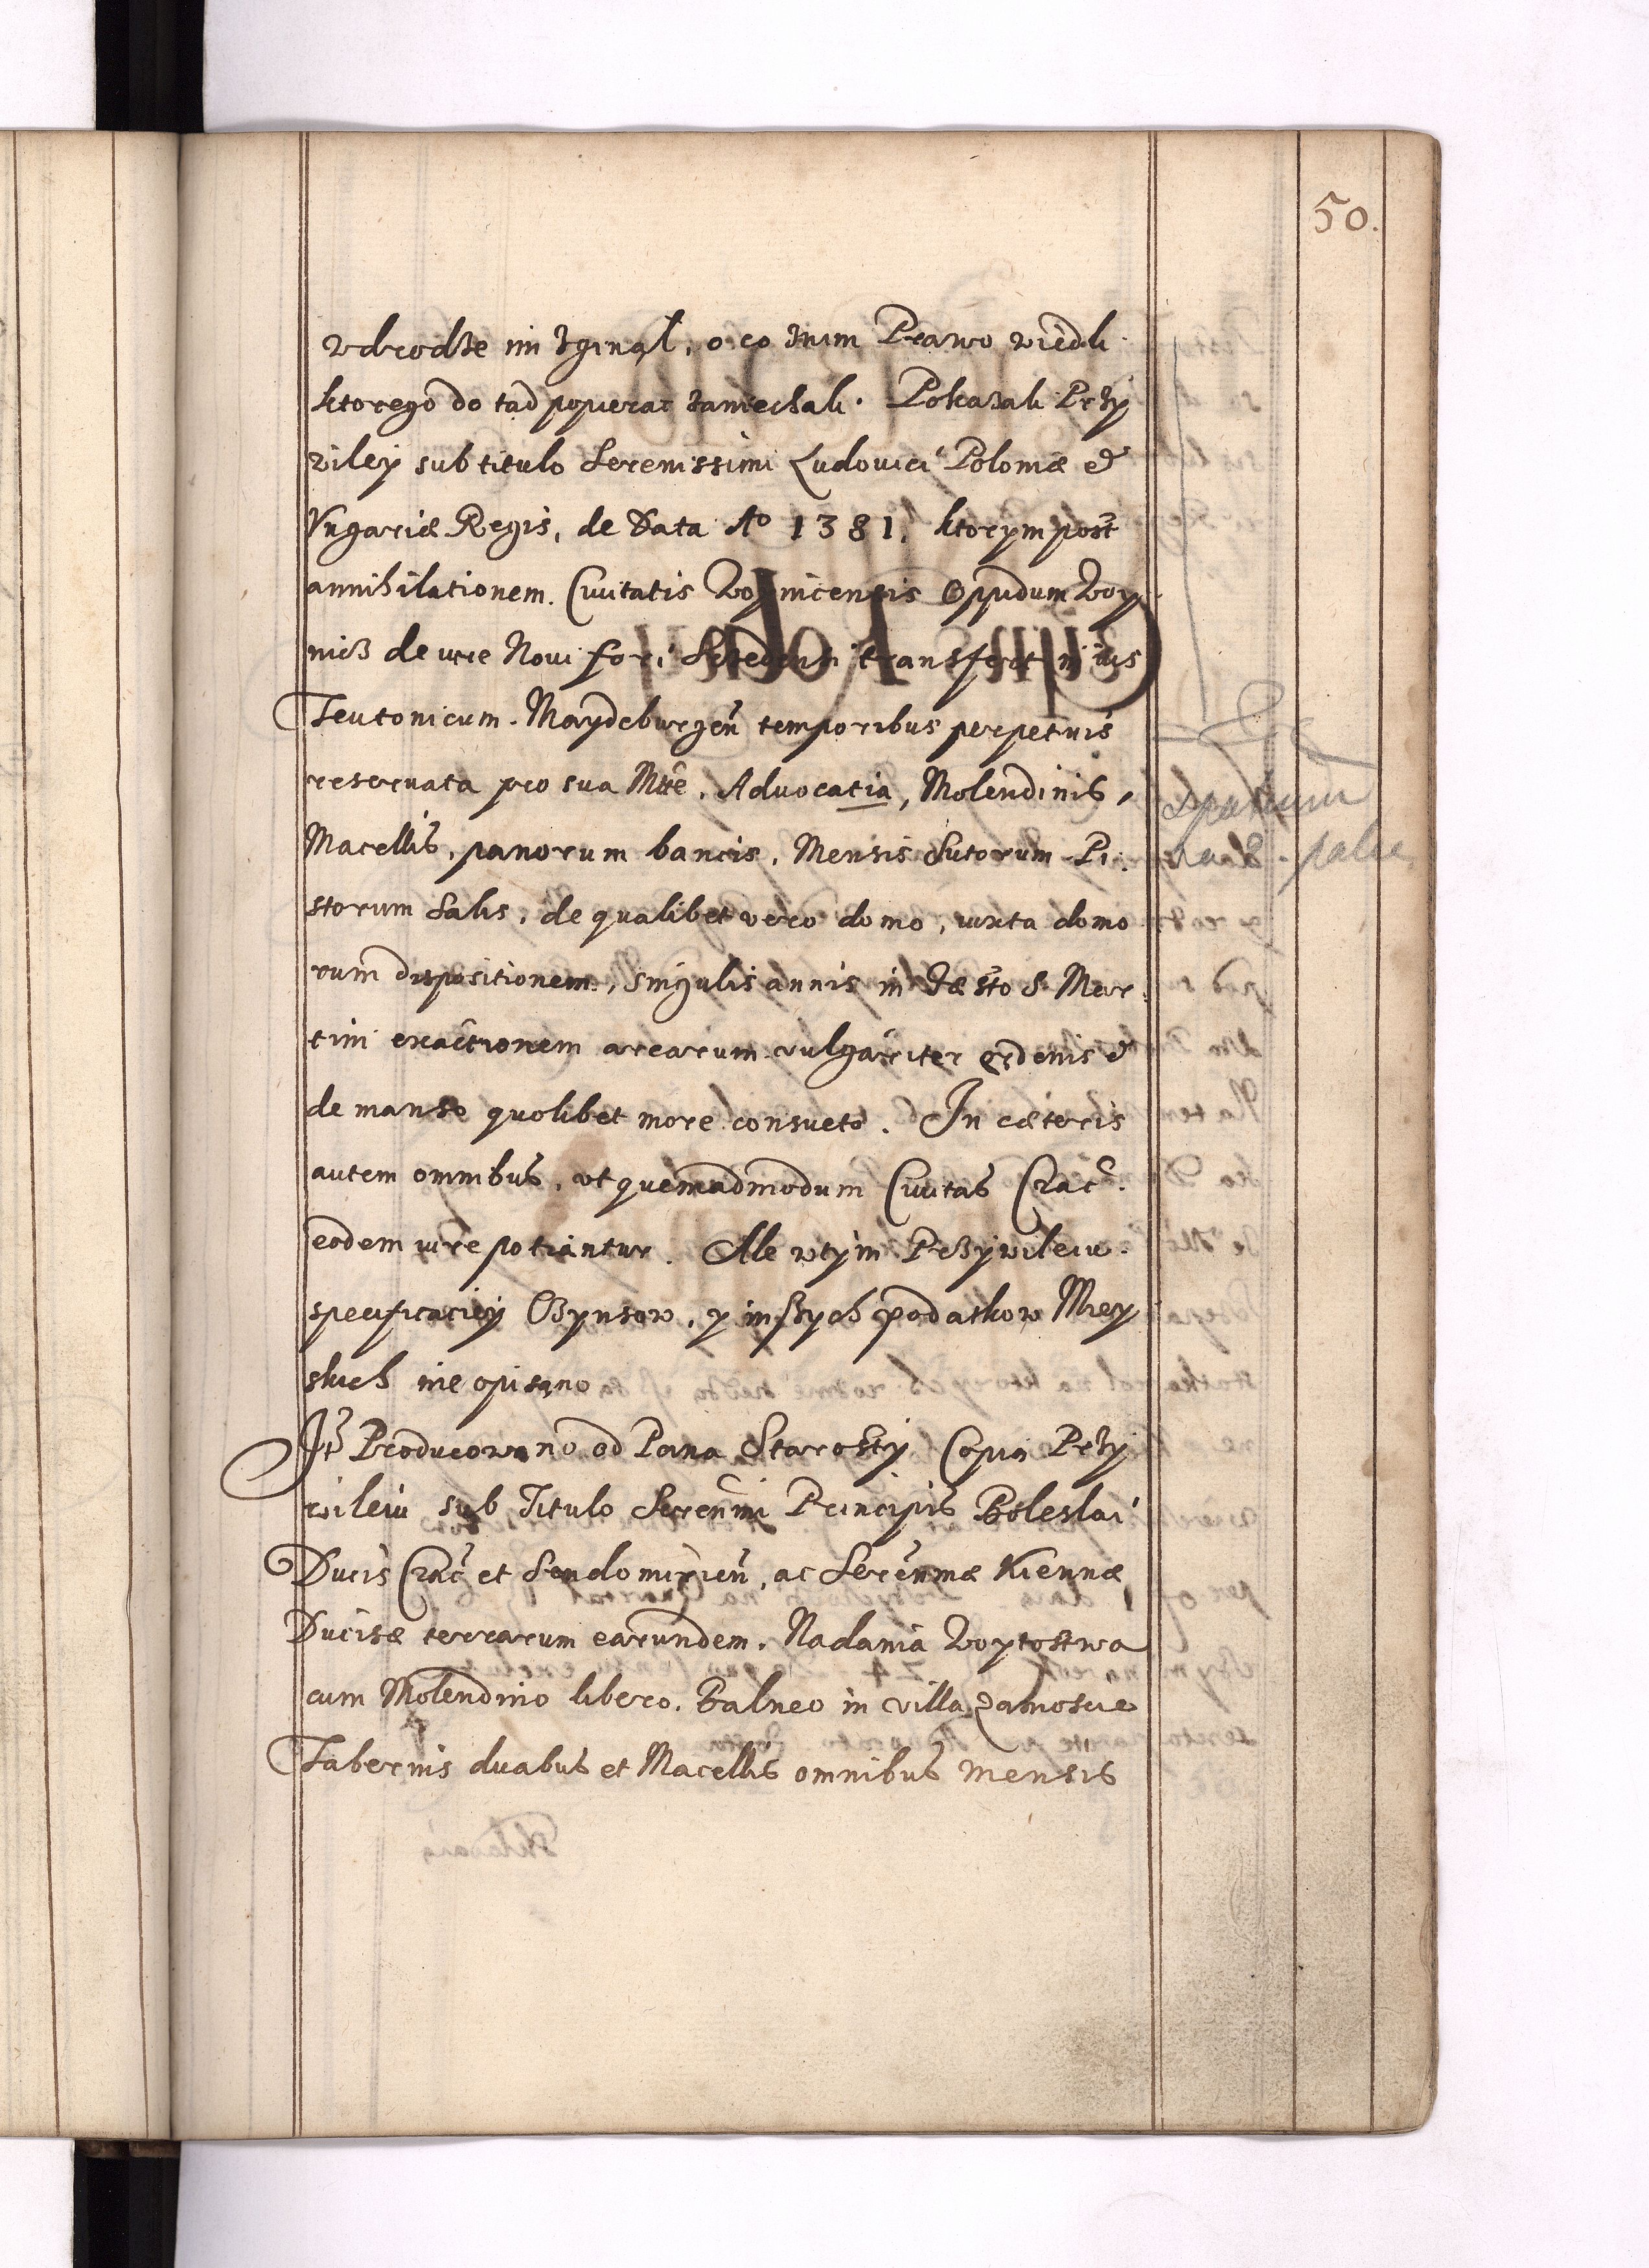 50.
wdrodze im zginął, o co znim Prawo wiedli
ktorego do tad popierac zaniechali. Pokazali Przy
viley sub titulo Serenissimi Ludouici Poloniæ et
Vngariæ Regis, de Data Aº 1381. ktorym post
annihilationem Ciuitatis Woynicensis Oppidum Woy
nicz de iure Noui fori Srzedensi transfert in ius
Teutonicum Maydeburgen temporibus perpetuis
reseruata pro sua Mtte. Aduocatia, Molendinis,
Macellis, panorum bancis, Mensis Sutorum Pi
storum Salis, de qualibet vero domo, iuxta domo
rum dispositionem, singulis annis in Fæsto S. Mar
tini exactionem arearum vulgariter ordenis et
de manso quolibet more consueto. In cæteris
autem omnibus, vt quemadmodum Ciuitas Crac.
eodem iure potiantur. Ale wtym Przywileiu
specificatiey Czynsow, y inszych podatkow Miey
skich nie opisano
It Producowano od Pana Starosty Copia Przy
wileiu sub Titulo Serenmi Principis Boleslai
Ducis Crac et Sendomirien, ac Serenmæ Kiennæ
Ducisæ terrarum earundem. Nadania Woytostwa
cum Molendino libero. Balneo in villa Zamoscie
Tabernis duabus et Macellis omnibus mensis